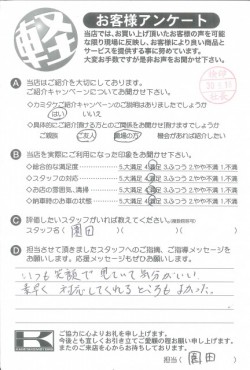 軽
お客様アンケート
当店では、お買い上げ頂いたお客様の声を可能な限り現場に反映し、お客様により良い商品と
サービスを提供する事に努めています。
大変お手数ですが是非お声をお聞かせ下さい。
A 当店はご紹介を大切にしております。
ご紹介キャンペーンについてお聞かせ下さい。
◇カミタケご紹介キャンペーンのご説明はありましたでしょうか
はい いいえ
◇具体的にご紹介頂ける方とのご関係をお聞かせ頂けますでしょうか
ご親族 ご友人 職場の方 機会があれば紹介したい
B 当店を実際にご利用になった印象をお聞かせ下さい。
◇総合的な満足度 5.大満足 4.満足 3.ふつう 2.やや不満 1.不満
◇スタッフの対応 5.大満足 4.満足 3.ふつう 2.やや不満 1.不満
◇お店の雰囲気、清掃 5.大満足 4.満足 3.ふつう 2.やや不満 1.不満
◇納車時のお車の状態 5.大満足 4.満足 3.ふつう 2.やや不満 1.不満
C 評価したいスタッフがいれば教えてください。
スタッフ名( 園田 )
D 担当させて頂きましたスタッフへのご指摘、ご指導メッセージを
お願いします。応援メッセージもぜひお願いします。
いつも笑顔で 気分がいい
素早く 対応してくれるところもよかった。
K
ご協力に心よりお礼を申し上げます。
今後とも宜しくお引き立てご愛顧の程お願い申し上げます。
またのご来店を心からお待ちしております。
担当( 園田 )